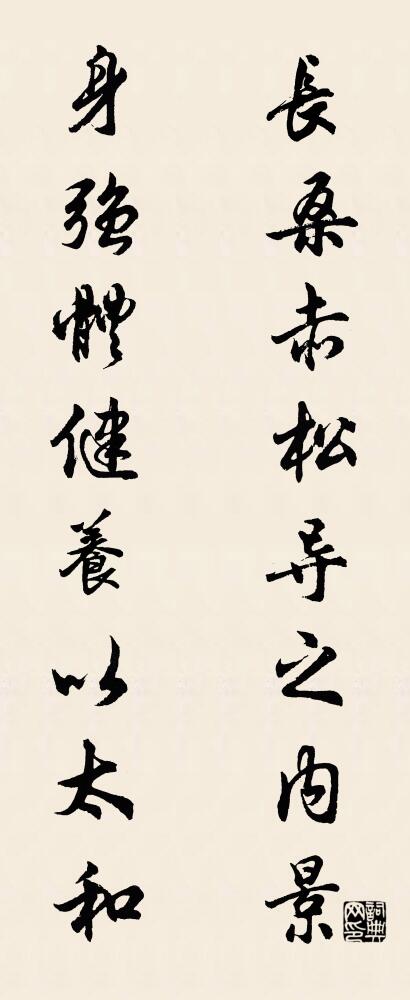 長桑赤松导之内景
身強體健養以太和
詞典网印